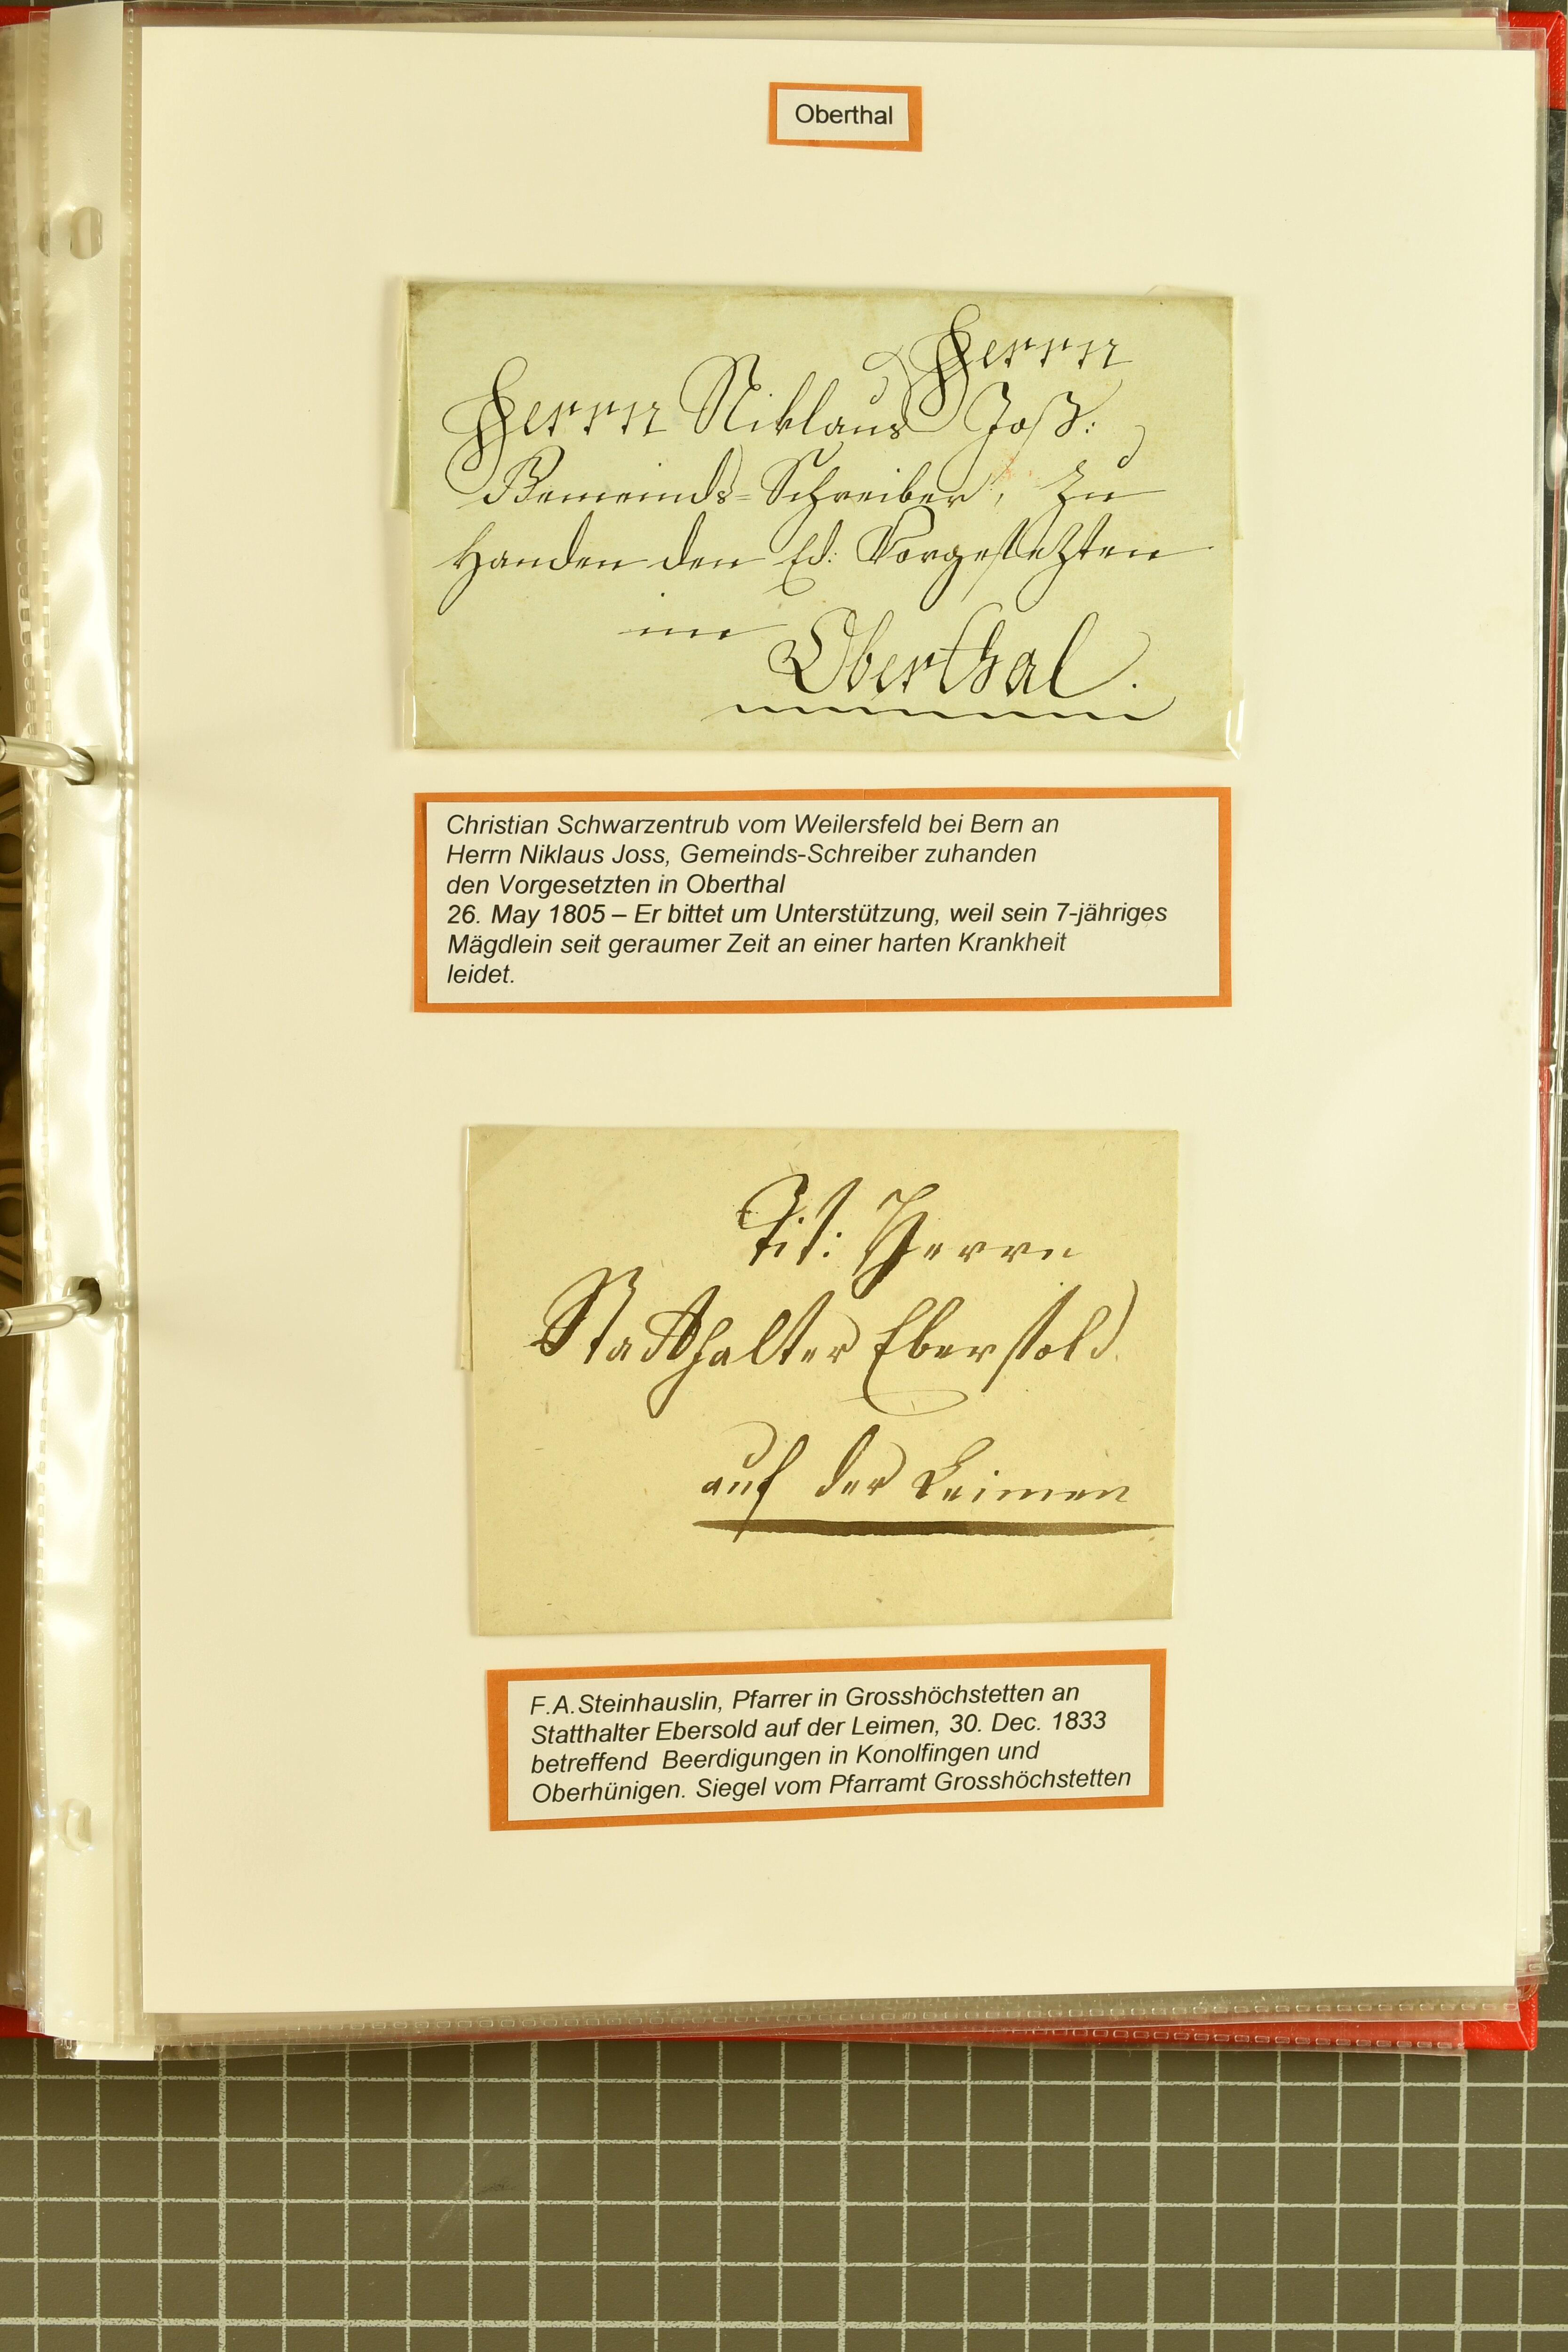 Oberthal
Herrn
Herrn Niklaus Joß:
Gemeinds=Schreiber, Zu
Handen den Ed: Vorgesetzten
im
Oberthal.
Christian Schwarzentrub vom Weilersfeld bei Bern an
Herrn Niklaus Joss, Gemeinds-Schreiber zuhanden
den Vorgesetzten in Oberthal
26. May 1805 – Er bittet um Unterstützung, weil sein 7-jähriges
Mägdlein seit geraumer Zeit an einer harten Krankheit
leidet.
Tit: Herrn
Statthalter Ebersold
auf der Leimen
F.A.Steinhauslin, Pfarrer in Grosshöchstetten an
Statthalter Ebersold auf der Leimen, 30. Dec. 1833
betreffend Beerdigungen in Konolfingen und
Oberhünigen. Siegel vom Pfarramt Grosshöchstetten